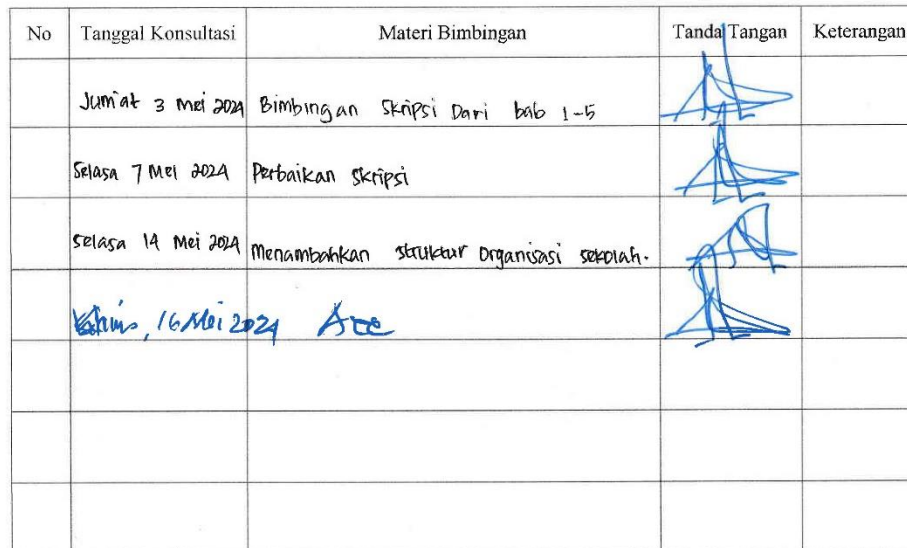 No Tanggal Konsultasi Materi Bimbingan Tanda Tangan Keterangan
Jum'at 3 mei 2024 Bimbingan Skripsi Dari bab 1-5
Selasa 7 Mei 2024 Perbaikan Skripsi
Selasa 14 Mei 2024 Menambahkan struktur organisasi sekolah.
Kamis, 16 Mei 2024 Acc